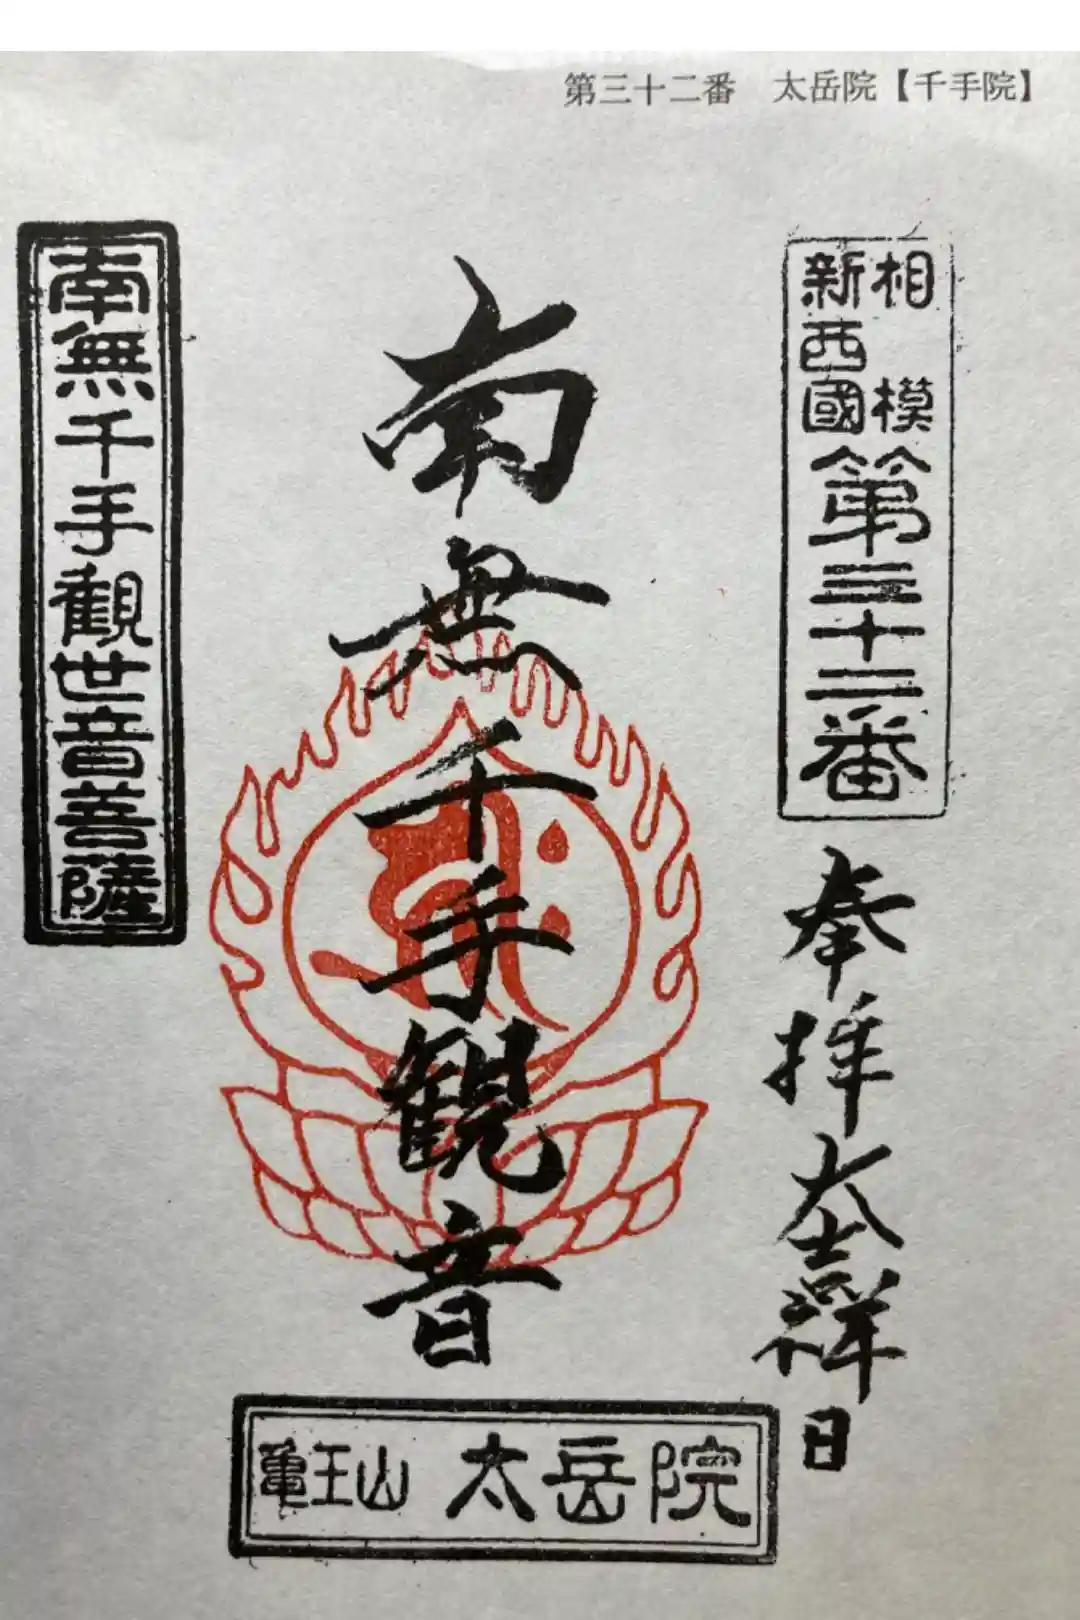 第三十二番　太岳院【千手院】
相模
新西國
第三十二番
奉拝大吉祥日
南無千手観音
南無千手観世音菩薩
亀王山 太岳院